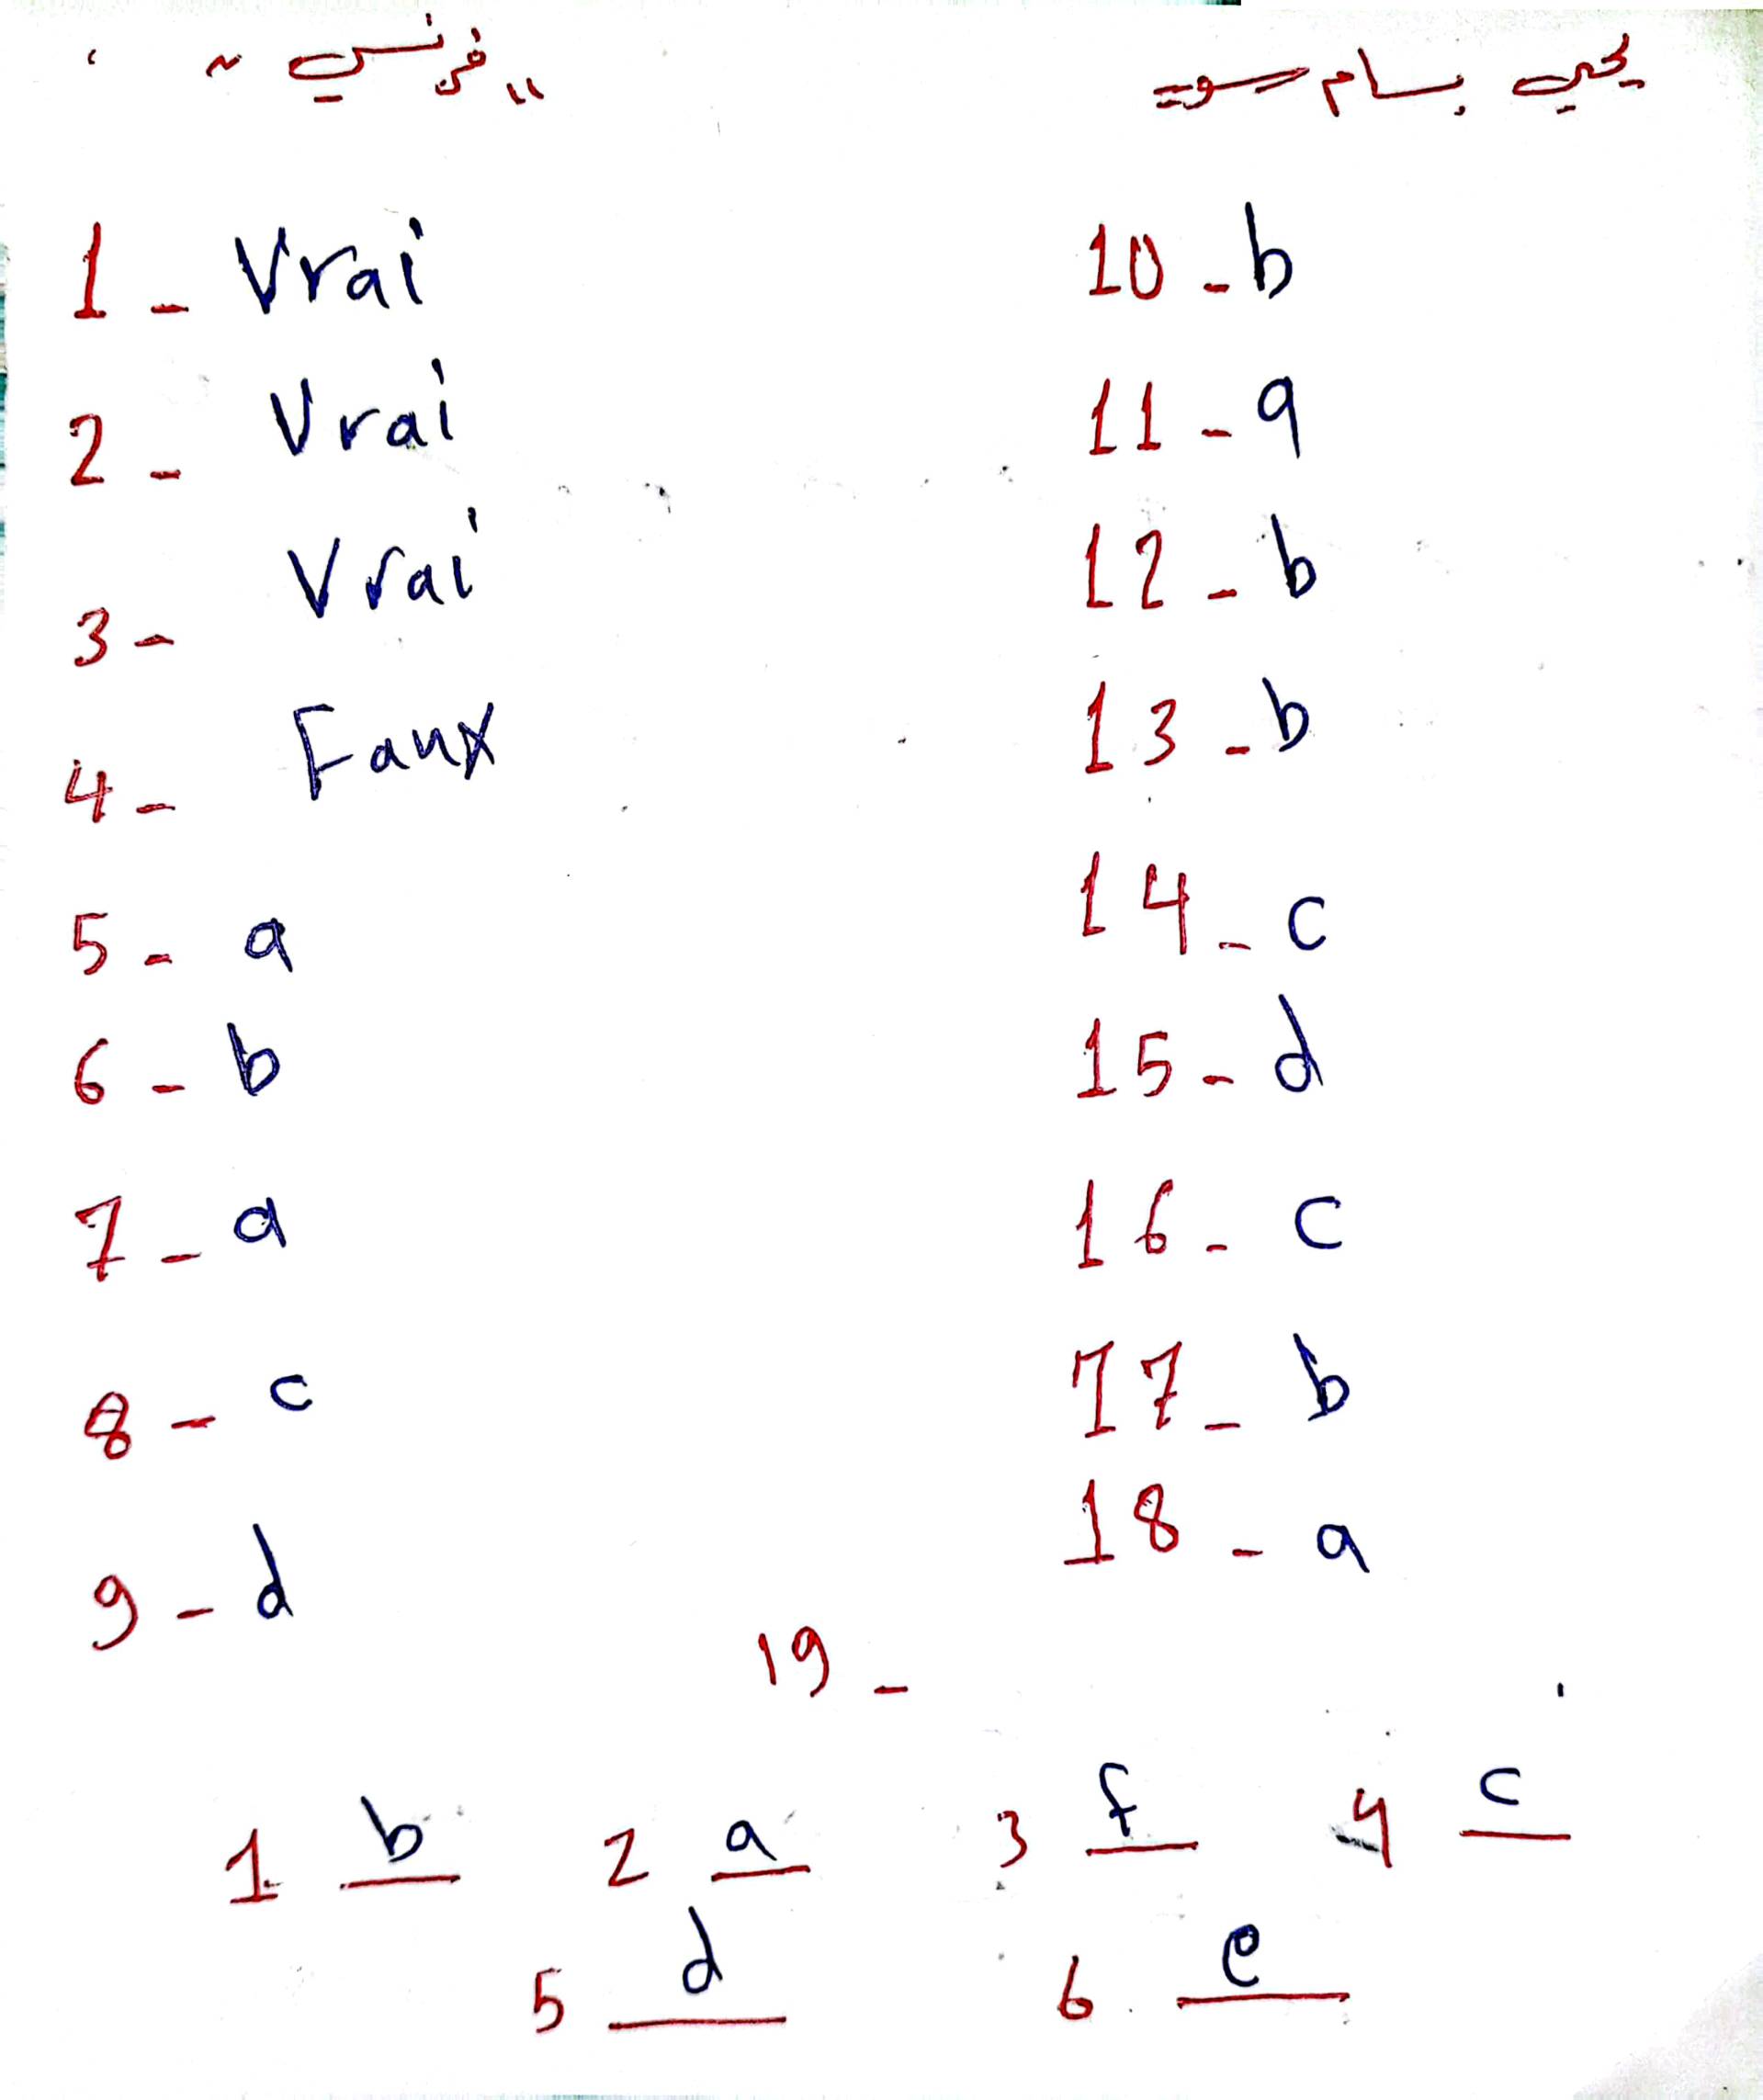 يحيى بسام سويد
" فرنسي "
1 - Vrai
2 - Vrai
3 - Vrai
4 - Faux
5 - a
6 - b
7 - a
8 - c
9 - d
10 - b
11 - a
12 - b
13 - b
14 - c
15 - d
16 - c
17 - b
18 - a
19 -
1 b 2 a 3 f 4 c
5 d 6 e